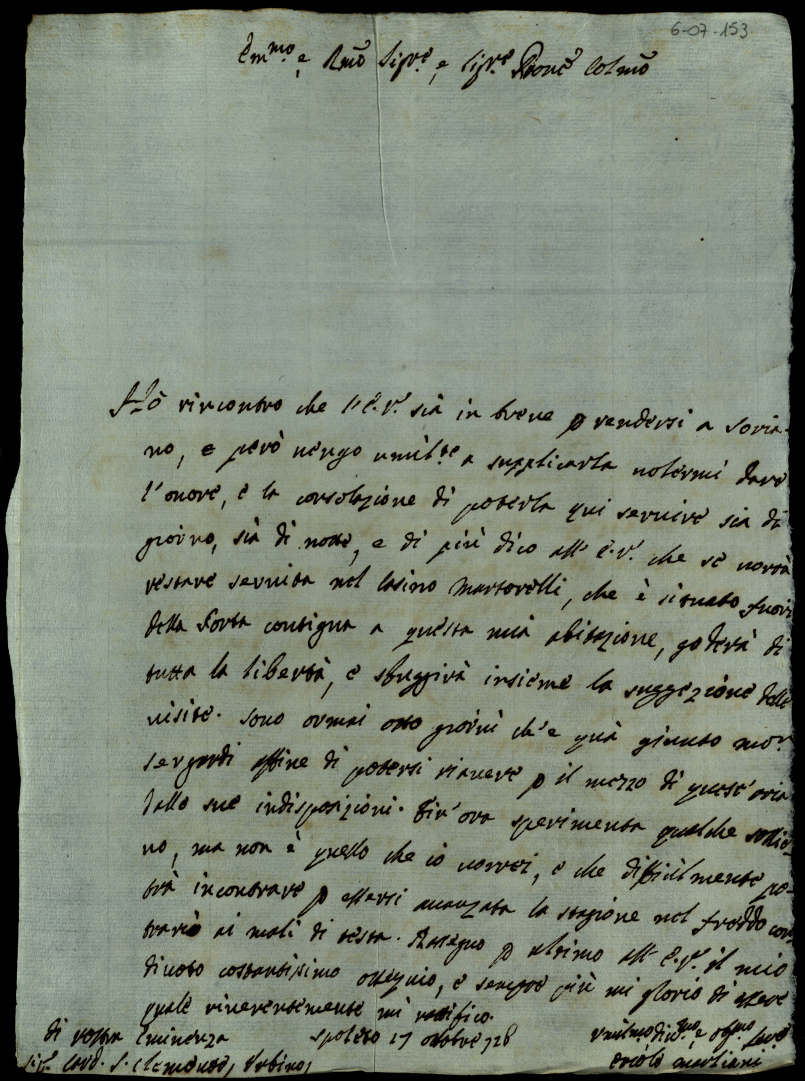 6-07-153
Em.mo e Rmo Sig.re, e Sig.re Prone Colmo
Hò rincontro che l'E.V. sià in breve p rendersi a Soria-
no, e però vengo umilte a supplicarla volermi dare
l'onore, e la consolazione di poterla qui servire sia di
giorno, sià di notte, e di più dico all'E.V. che se vorrà
restare servita nel Casino Martorelli, che è situato fuori
della Porta contigua a questa mià abitazione, goderà di
tutta la libertà, e sfuggirà insieme la suggezione delle
visite. Sono ormai otto giorni ch'e quà giunto Mon.r
Sergardi affine di potersi riavere p il mezzo di quest'aria
dalle sue indisposizioni. Fin'ora sperimenta qualche sollie-
vo, ma non è quello che io vorrei, e che difficilmente po-
trà incontrare p essersi avanzata la stagione nel freddo con-
trario ai mali di testa. Rassegno p ultimo all'E.V. il mio
divoto costantissimo ossequio, e sempre più mi glorio di essere
quale riverentemente mi ratifico.
di vostra Eminenza Spoleto 17 ottobre 728 Umilmo, div.mo, e obg.mo Serre
Sig.r Card. S. Clemente, Urbino, Ercole Marliani